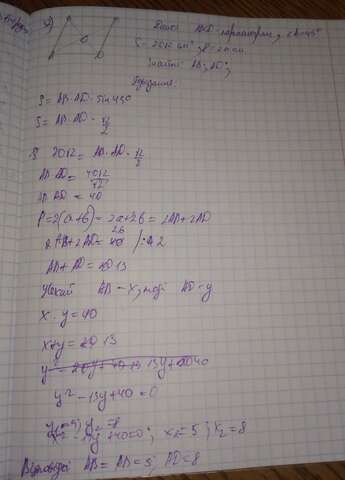 Дано: ABCD - паралелограм, ∠A=45°
S = 20√2 см², P = 26 см
Знайти: AB; AD;
Розв'язання
S = AB · AD · sin 45°
S = AB · AD · √2/2
20√2 = AB · AD · √2/2
AB · AD = 40√2/√2
AB · AD = 40
P = 2(a+b) = 2a+2b = 2AB+2AD
2AB + 2AD = 26 /:2
AB + AD = 13
Нехай AB - x, тоді AD - y
x · y = 40
x+y = 13
y² - 13y + 40 = 0
x₁ = 5; x₂ = 8
Відповідь: AB = 5; AD = 8